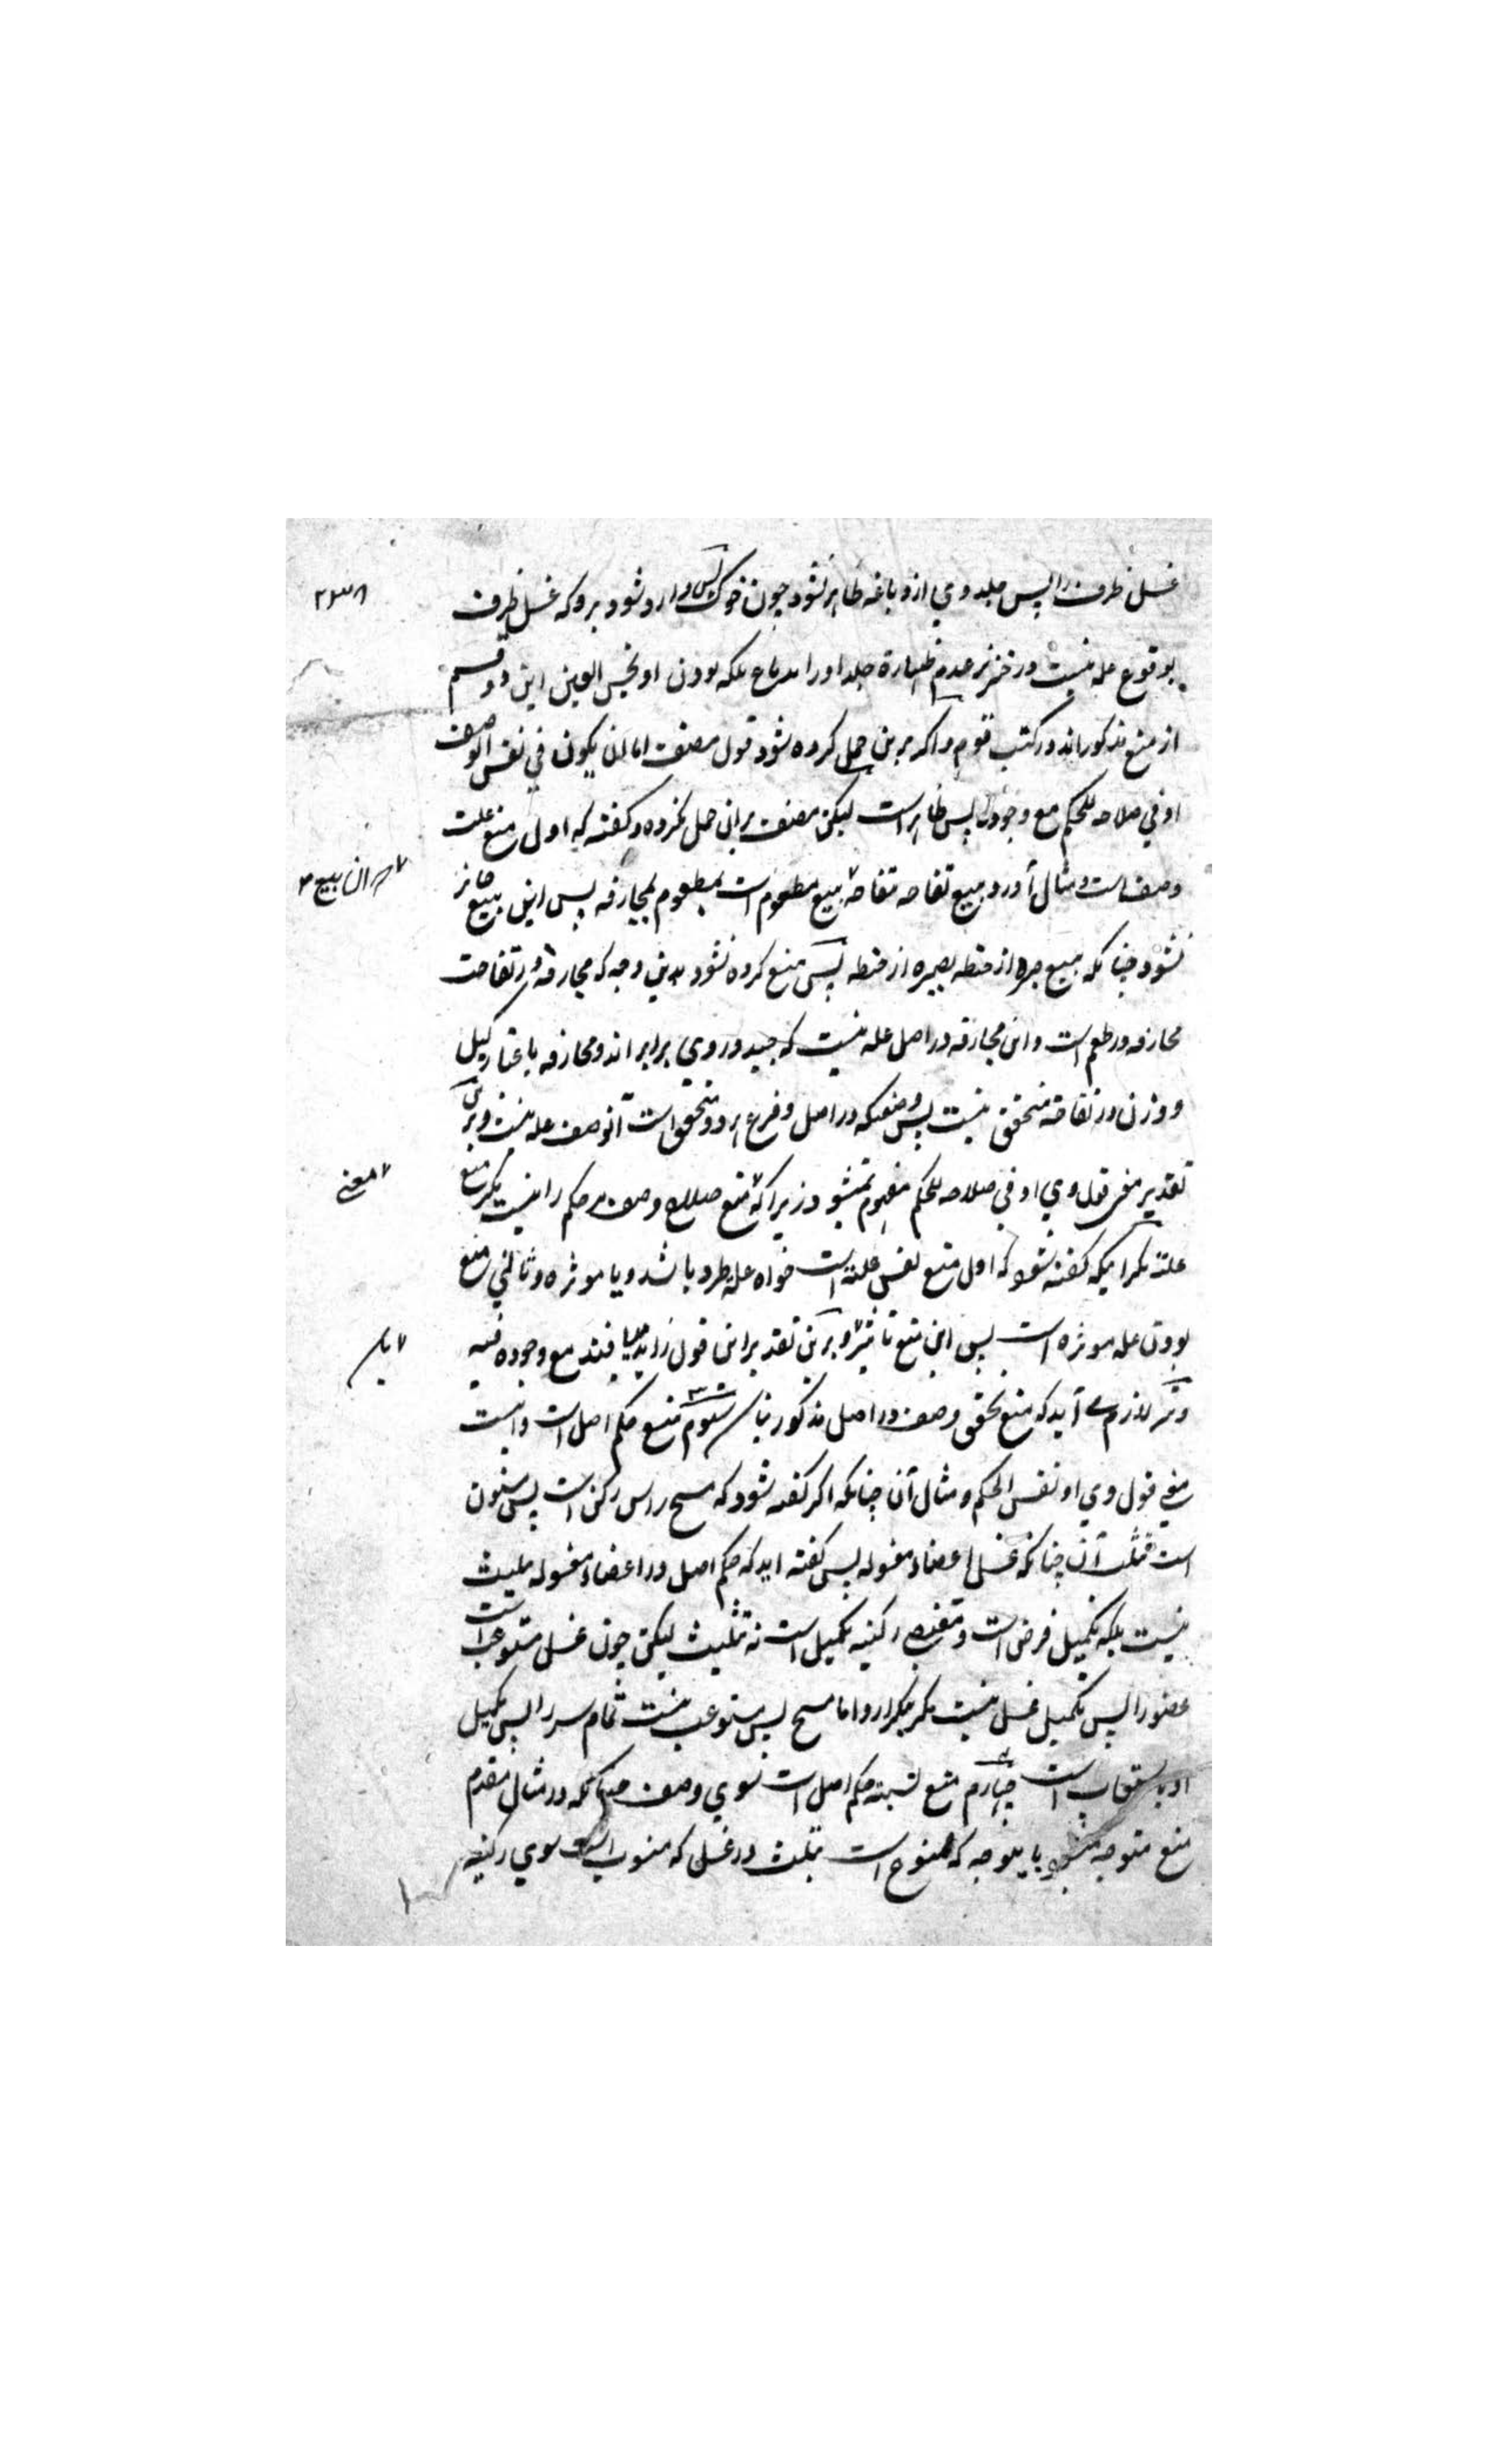 غسل ظرف را پس جلد وي از دباغه طاهر نشود چون خوك پس وارد شود برو كه غسل ظرف
۲۳۸
بوقوع عله نيست در خنزير عدم طهارة جلد او را بلكه بودن او نجس العين اين دو قسم
از منع مذكور اند در كتب قوم و اكر برين حمل كرده شود قول مصنف اما ان يكون في نفس الوصف
او في صلاحه للحكم مع وجوده پس ظاهر است ليكن مصنف بران حمل نكرده و كفته كه اول منع علت
وصف است و مثال آورد ببيع تفاحه تفاحة بيع مطعوم است بمطعوم بمجازفه پس اين بيع جائز
نشود چنانكه بيع صبره از حنطه بصبره از حنطه پس منع كرده شود بدين وجه كه مجازفه در تفاحت
مجازفه در طعم است و اين مجازفه در اصل عله نيست كه جيد و ردي برابر اند و مجازفه باعتبار كيل
و وزن در تفاحه متحقق نيست پس وصفيكه در اصل و فرع هر دو متحقق است آنوصف عله نيست و برين
تقدير معني قول وي او في صلاحه للحكم مفهوم نميشود زيرا كه منع صلاح وصف مر حكم را نيست مكر منع
معني
علته مكر اينكه كفته شود كه اول منع نفس علته است خواه عله طرد باشد و يا موثره و ثاني منع
بودن عله موثره است پس اين منع تاثير و برين تقدير اين قول زايد ميافتد مع وجوده فيه
و نيز لازم مے آيد كه منع تحقق وصف در اصل مذكور نباشد سوم منع حكم اصل است و اينست
معني قول وي او نفس الحكم و مثال آن چنانكه اكر كفته شود كه مسح راس ركن است پس مسنون
است تثليث آن چنانكه غسل اعضاء مغسوله پس كفته آيد كه حكم اصل در اعضاء مغسوله تثليث
نيست بلكه تكميل فرض است و مقتضي ركنيه تكميل است نه تثليث ليكن چون غسل مستوعب است
عضو را پس تكميل غسل نيست مكر بتكرار و اما مسح پس مستوعب نيست تمام سر را پس تكميل
او باستيعاب است چهارم منع نسبته حكم اصل است بسوي وصف چنانكه در مثال مقدم
منع متوجه ميشود باينوجه كه ممنوع است تثليث در غسل كه منسوب است بسوي ركنيه